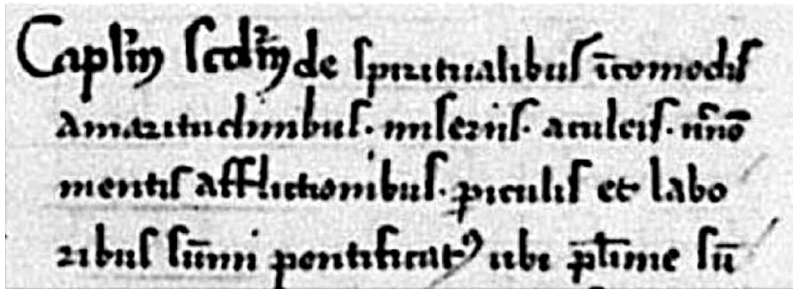 Capl̄m scd̄m de spiritualibus īcomodis
amaritudinibus. miseriis. aculeis. nn̄o
mentis afflictionibus. ꝑiculis et labo
ribus sūmi pontificatꝰ ubi p̄t̄ime sū